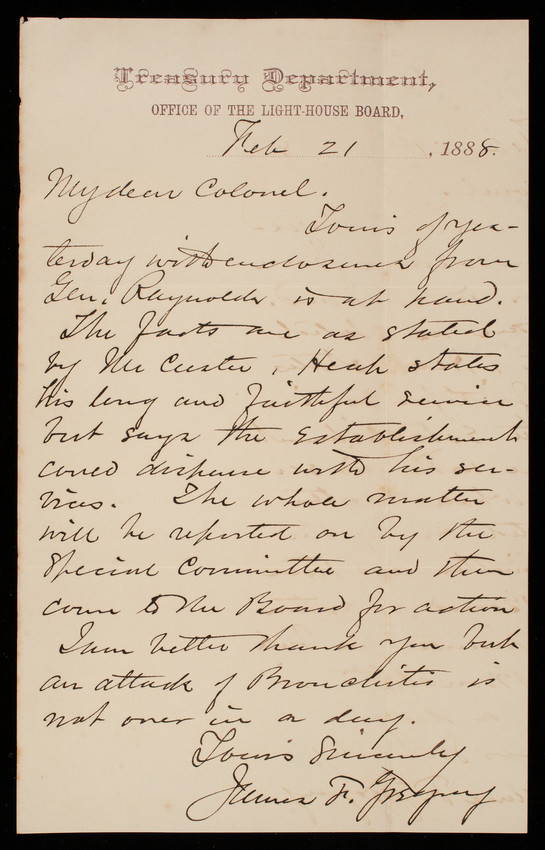 Treasury Department,
OFFICE OF THE LIGHT-HOUSE BOARD,
Feb 21, 1888.
My dear Colonel.
Yours of yes-
terday with enclosures from
Gen. Raynolds is at hand.
The facts are as stated
by Mr Custer, Heap states
his long and faithful service
but says the Establishment
could dispense with his ser-
vices. The whole matter
will be reported on by the
Special Committee and then
come to the Board for action
I am better thank you but
an attack of Bronchitis is
not over in a day.
Yours Sincerely
James F. Gregory